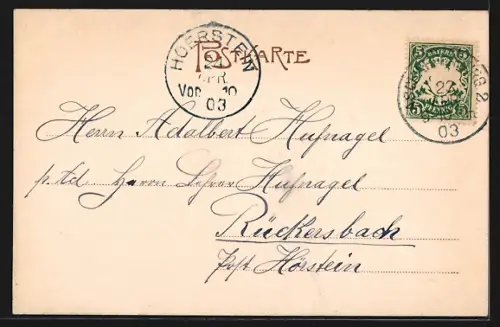 POSTKARTE
HOERSTEIN
APR.
Vor 10
03
5 BAYERN 5
22
2
03
Herrn Adalbert Hufnagel
p. Ad Herrn Lehrer Hufnagel
Rückersbach
Post Hörstein